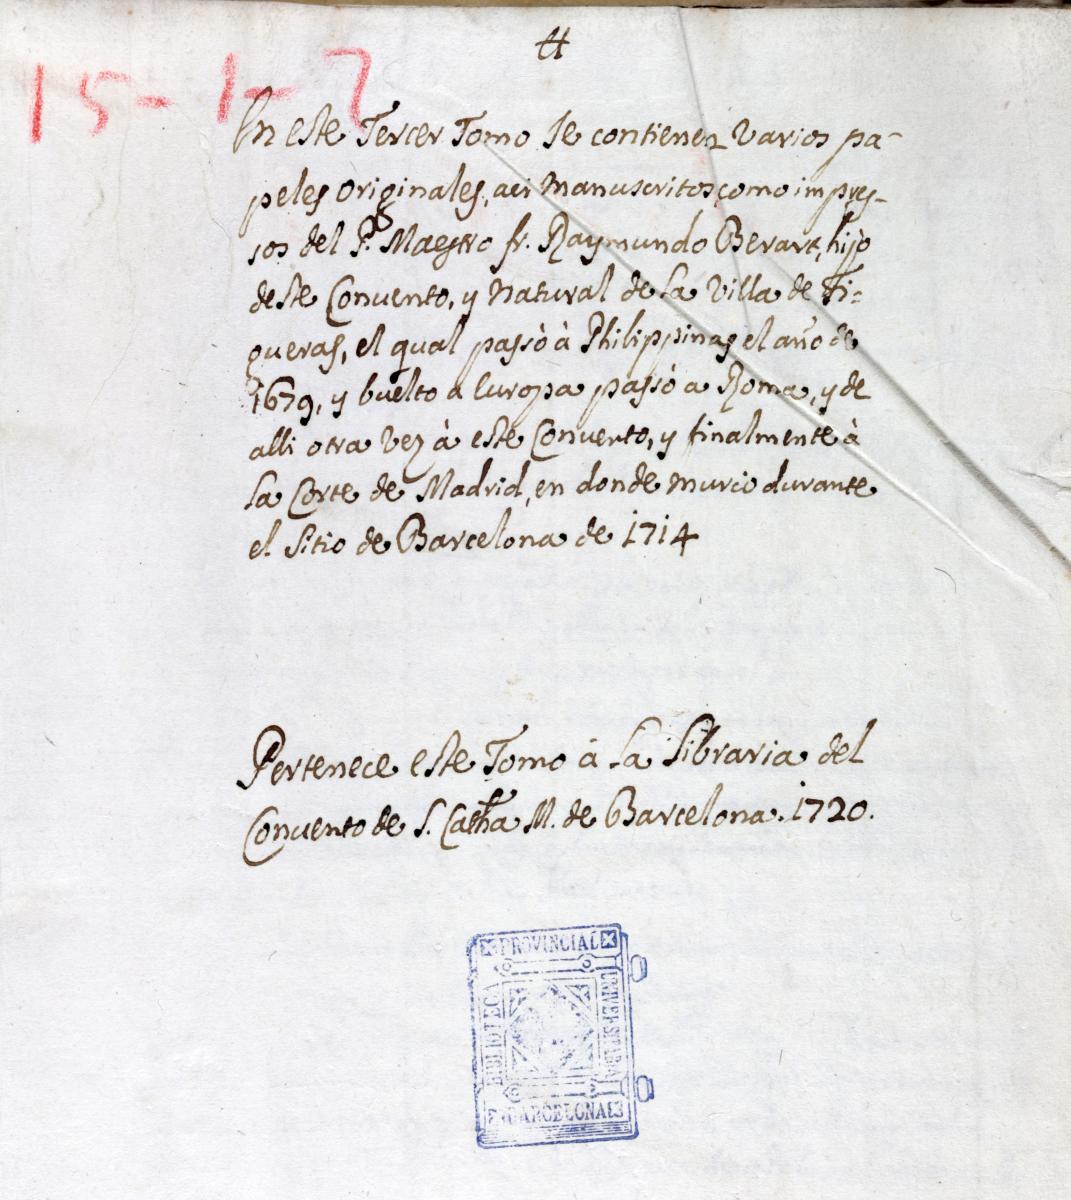 15-1-7
En este Tercer Tomo se contienen varios pa-
peles originales, aci manuscritos como impres-
sos del P.e Maestro fr. Raymundo Berart, hijo
deste Convento, y natural de la Villa de Fi-
gueras, el qual passò à Philippinas el año de
1679, y buelto a Europa passó a Roma, y de
alli otra vez à este Convento, y finalmente à
la Corte de Madrid, en donde murio durante
el Sitio de Barcelona de 1714
Pertenece este Tomo à la Libraria del
Convento de S. Catha M. de Barcelona. 1720.
BIBLIOTECA
PROVINCIAL
UNIVERSITARIA
BARCELONA